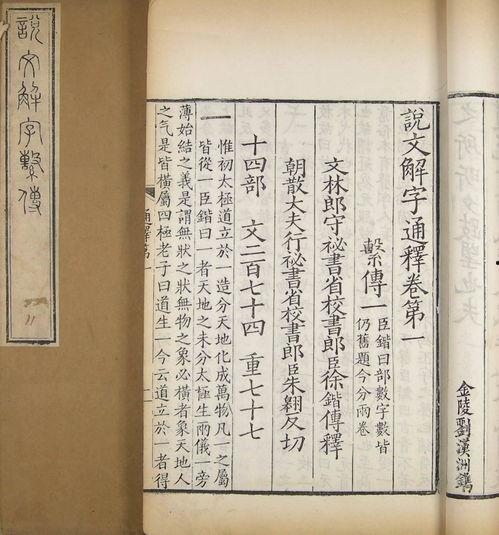 說文解字繫傳
11
金陵劉漢洲鐫
說文解字通釋卷第一
繫傳一
臣鍇曰部數字數皆
仍舊題今分兩卷
文林郎守祕書省校書郎臣徐鍇傳釋
朝散大夫行祕書省校書郎臣朱翱反切
十四部 文二百七十四 重七十七
一 惟初太極道立於一造分天地化成萬物凡一之屬
皆從一臣鍇曰一者天地之未分太極生兩儀一旁
薄始結之義是謂無狀之狀無物之象必橫者象天地人
之气是皆橫屬四極老子曰道生一今云道立於一者得